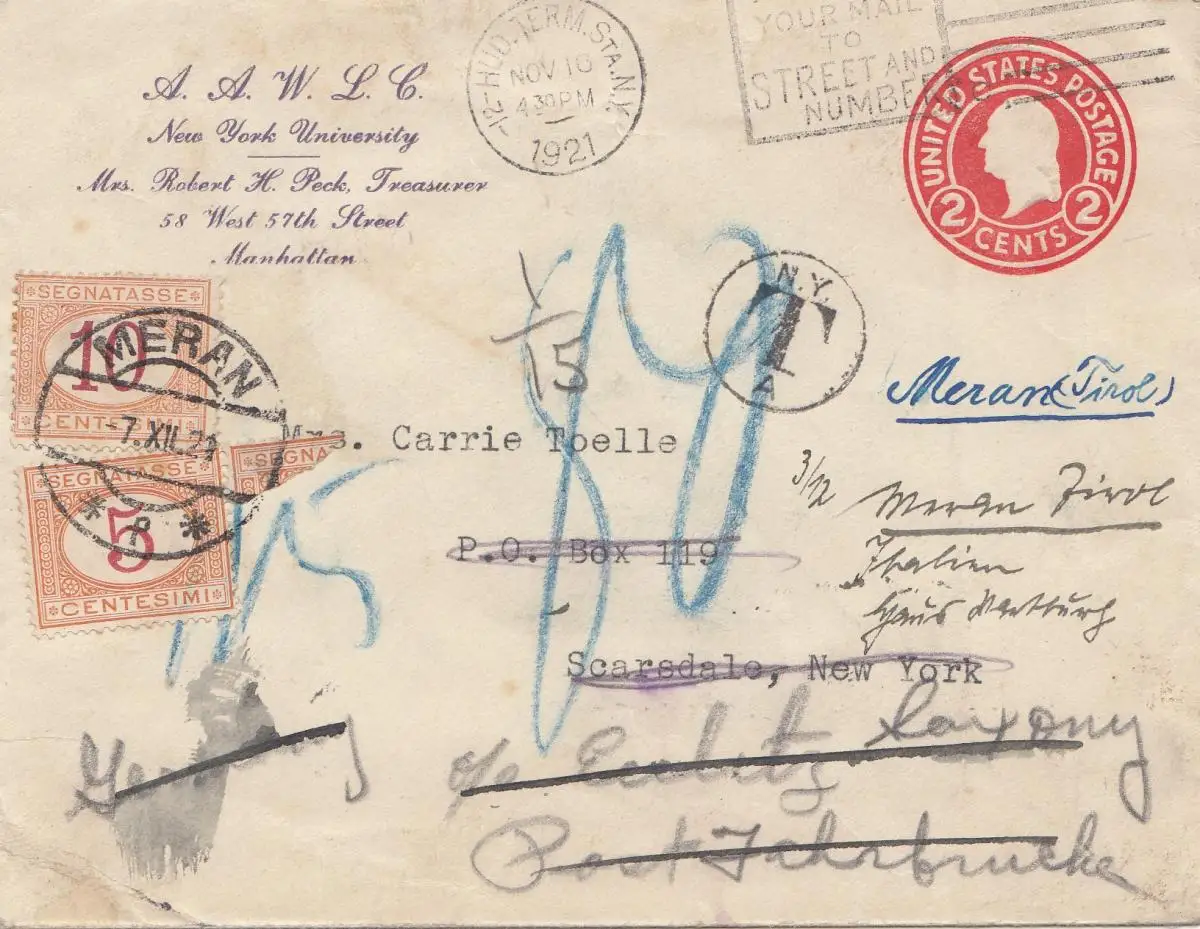 A. A. W. L. C.
New York University
Mrs. Robert H. Peck, Treasurer
58 West 57th Street
Manhattan
HUD. TERM. STA. N.Y.
NOV 10
4 30 PM
1921
YOUR MAIL
TO
STREET AND
NUMBER
UNITED STATES POSTAGE
2 CENTS 2
N.Y.
T
A
15
SEGNATASSE
10
CENTESIMI
MERAN
-7.XII.21
SEGNATASSE
5
CENTESIMI
SEGNA
Meran (Tirol)
Mrs. Carrie Toelle
3/12
Meran Tirol
P.O. Box 119
Italien
Haus
Scarsdale, New York
Saxony
Germany
Post